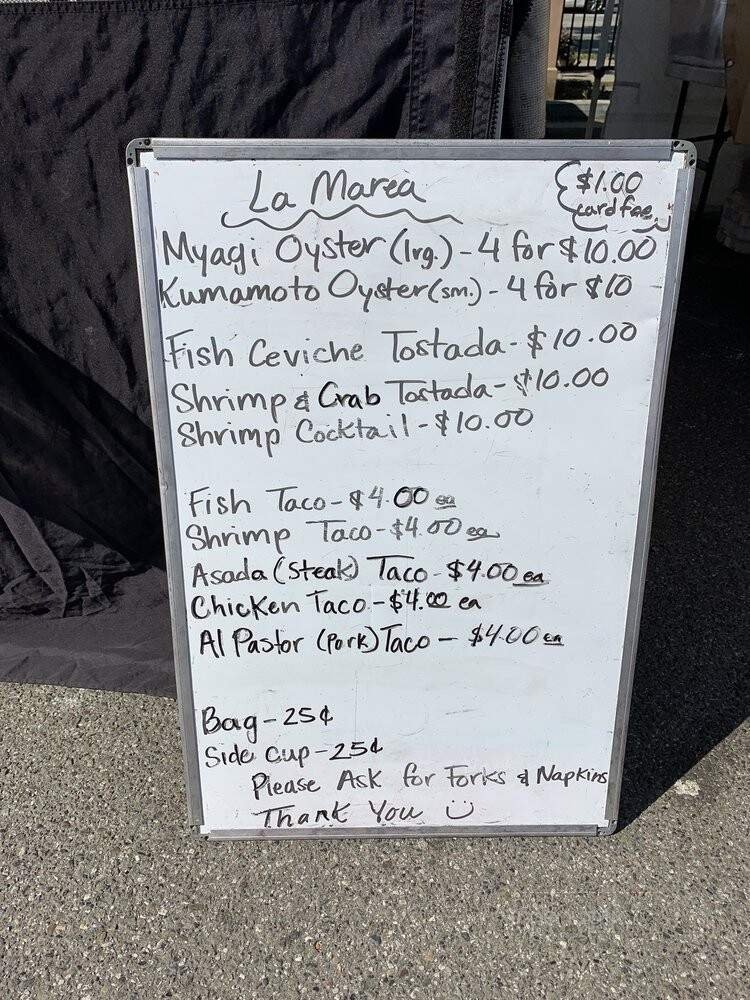 La Marea
$1.00
card fee
Myagi Oyster (lrg.) - 4 for $10.00
Kumamoto Oyster (sm.) - 4 for $10
Fish Ceviche Tostada - $10.00
Shrimp & Crab Tostada - $10.00
Shrimp Cocktail - $10.00
Fish Taco - $4.00 ea
Shrimp Taco - $4.00 ea
Asada (Steak) Taco - $4.00 ea
Chicken Taco - $4.00 ea
Al Pastor (Pork) Taco - $4.00 ea
Bag - 25¢
Side cup - 25¢
Please Ask for Forks & Napkins
Thank You